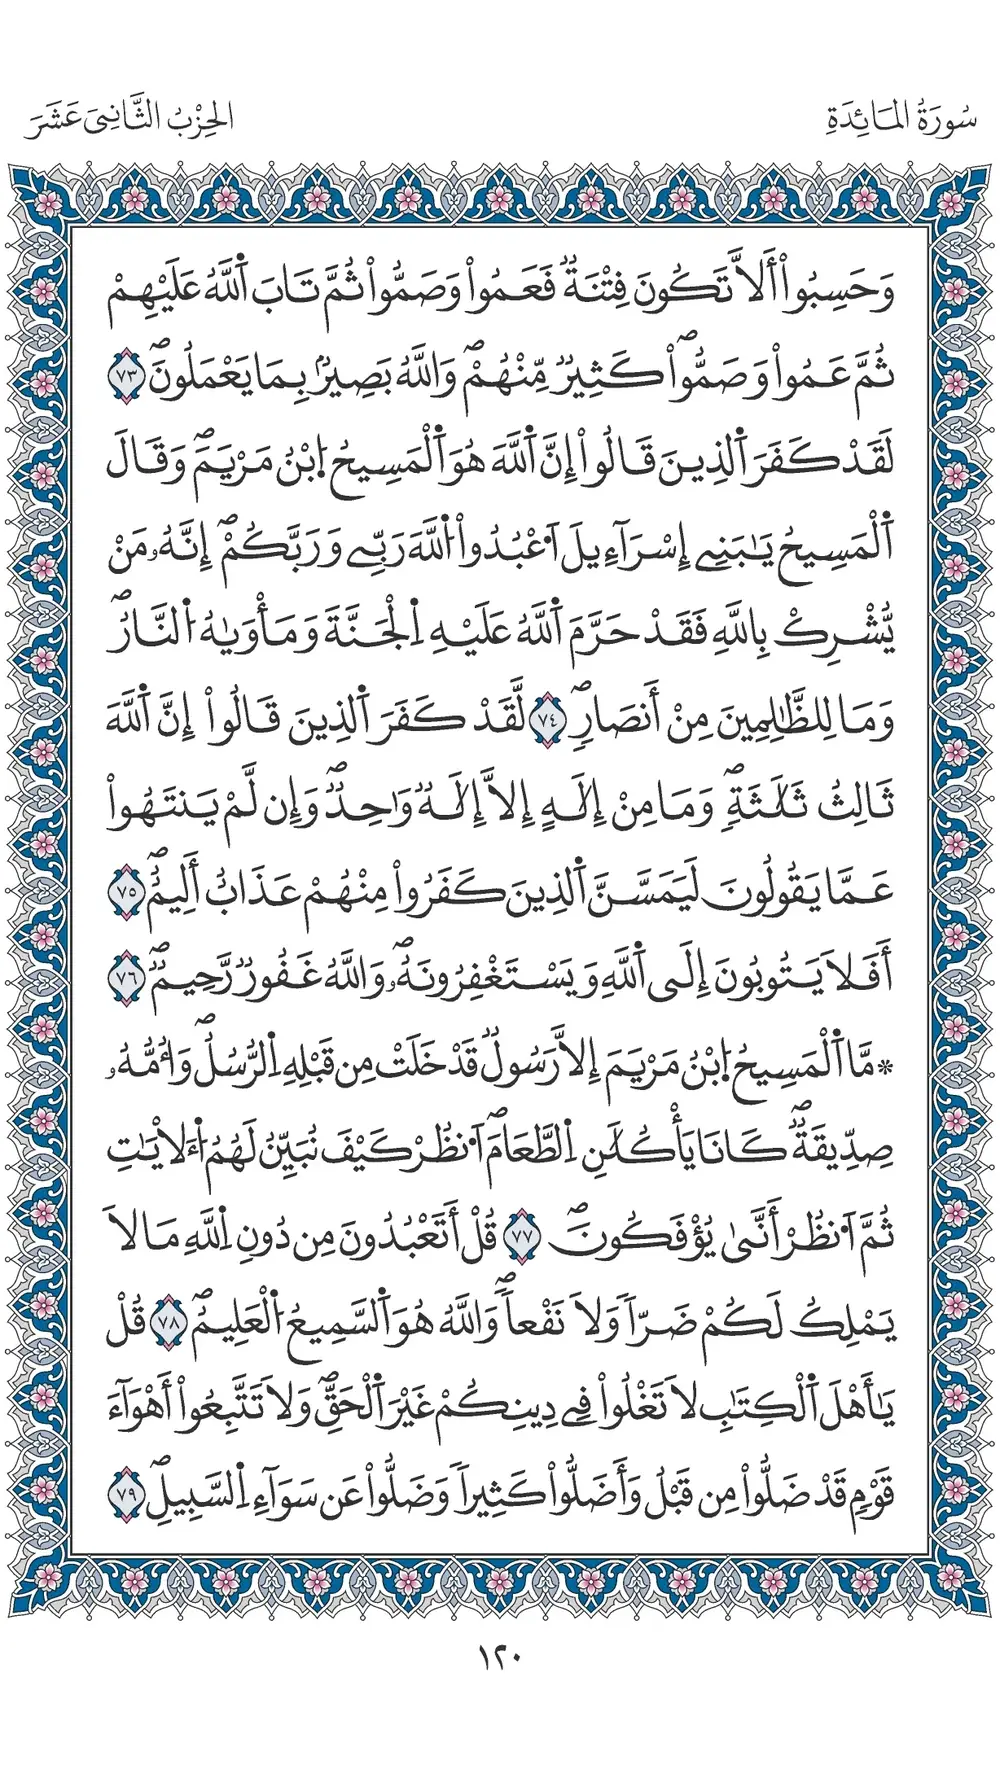 سُورَةُ المَائِدَةِ
الحِزْبُ الثَّانِيَ عَشَرَ
وَحَسِبُواْ أَلَّا تَكُونَ فِتْنَةٌ فَعَمُواْ وَصَمُّواْ ثُمَّ تَابَ اَ۬للَّهُ عَلَيْهِمْ
ثُمَّ عَمُواْ وَصَمُّواْۖ كَثِيرٌ مِّنْهُمْۖ وَاللَّهُ بَصِيرٌۢ بِمَا يَعْمَلُونَۖ ٧٣
لَقَدْ كَفَرَ اَ۬لذِينَ قَالُواْ إِنَّ اَ۬للَّهَ هُوَ اَ۬لْمَسِيحُ اُ۪بْنُ مَرْيَمَۖ وَقَالَ
اَ۬لْمَسِيحُ يَٰبَنِےٓ إِسْرَآءِيلَ اَ۟عْبُدُواْ اُ۬للَّهَ رَبِّے وَرَبَّكُمْۖ إِنَّهُۥ مَنْ
يُّشْرِكْ بِاللَّهِ فَقَدْ حَرَّمَ اَ۬للَّهُ عَلَيْهِ اِ۬لْجَنَّةَ وَمَأْوَيٰهُ اُ۬لنَّارُۖ
وَمَا لِلظَّٰلِمِينَ مِنْ أَنصَارٖۖ ٧٤ لَّقَدْ كَفَرَ اَ۬لذِينَ قَالُواْ إِنَّ اَ۬للَّهَ
ثَالِثُ ثَلَٰثَةٖۖ وَمَا مِنْ إِلَٰهٍ إِلَّا إِلَٰهٌ وَٰحِدٌۖ وَإِن لَّمْ يَنتَهُواْ
عَمَّا يَقُولُونَ لَيَمَسَّنَّ اَ۬لذِينَ كَفَرُواْ مِنْهُمْ عَذَابٌ أَلِيمٌۖ ٧٥
أَفَلَا يَتُوبُونَ إِلَى اَ۬للَّهِ وَيَسْتَغْفِرُونَهُۥۖ وَاللَّهُ غَفُورٌ رَّحِيمٌۖ ٧٦
* مَّا اَ۬لْمَسِيحُ اُ۪بْنُ مَرْيَمَ إِلَّا رَسُولٌ قَدْ خَلَتْ مِن قَبْلِهِ اِ۬لرُّسُلُۖ وَأُمُّهُۥ
صِدِّيقَةٌۖ كَانَا يَأْكُلَٰنِ اِ۬لطَّعَامَۖ اَ۟نظُرْ كَيْفَ نُبَيِّنُ لَهُمُ اُ۬لَأيَٰتِ
ثُمَّ اَ۟نظُرْ أَنَّىٰ يُؤْفَكُونَۖ ٧٧ قُلْ أَتَعْبُدُونَ مِن دُونِ اِ۬للَّهِ مَا لَا
يَمْلِكُ لَكُمْ ضَرّاٗ وَلَا نَفْعاٗۖ وَاللَّهُ هُوَ اَ۬لسَّمِيعُ اُ۬لْعَلِيمُۖ ٧٨ قُلْ
يَٰأَهْلَ اَ۬لْكِتَٰبِ لَا تَغْلُواْ فِے دِينِكُمْ غَيْرَ اَ۬لْحَقِّۖ وَلَا تَتَّبِعُواْ أَهْوَآءَ
قَوْمٖ قَدْ ضَلُّواْ مِن قَبْلُ وَأَضَلُّواْ كَثِيراٗ وَضَلُّواْ عَن سَوَآءِ اِ۬لسَّبِيلِۖ ٧٩
١٢٠